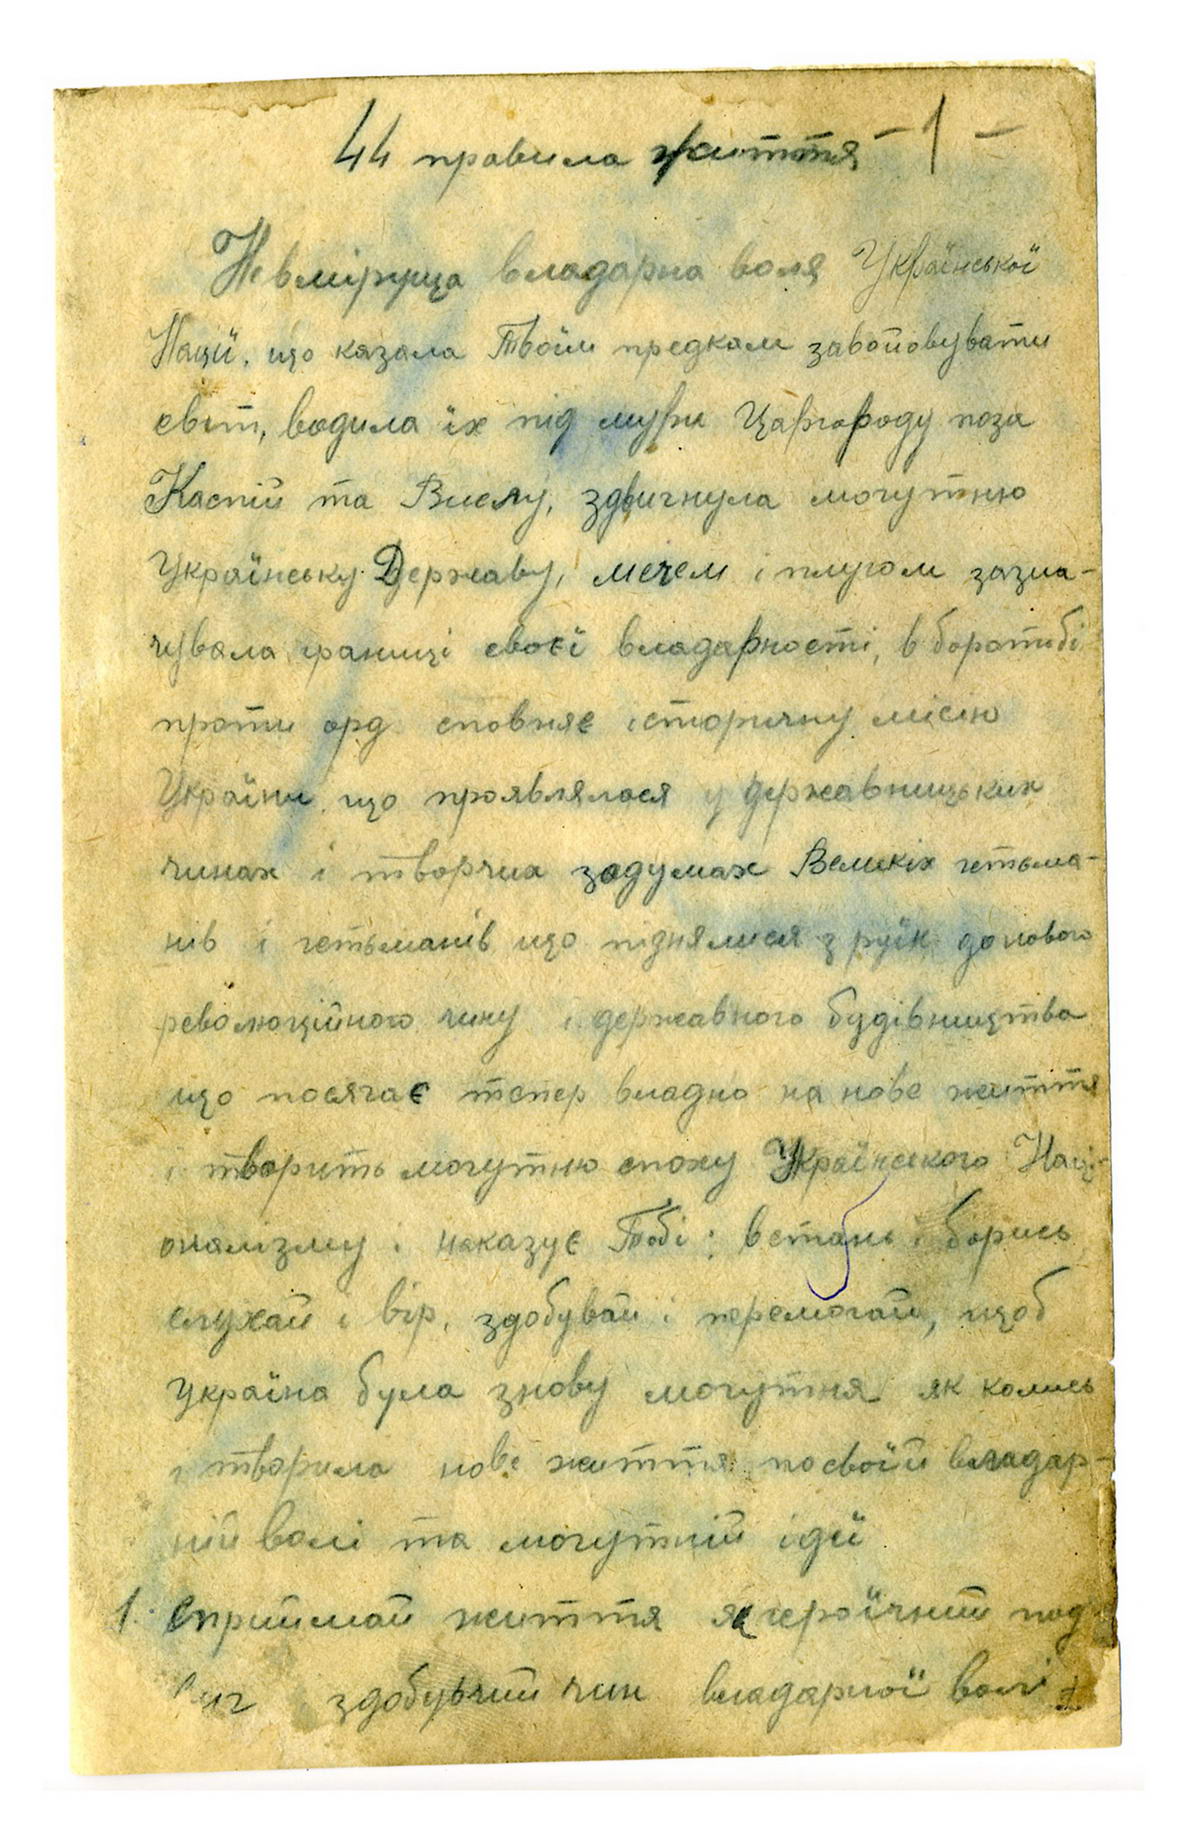 44 правила життя - 1 -
Невміруща владарна воля Української
Нації, що казала Твоїм предкам завойовувати
світ, водила їх під мури Царгороду поза
Каспій та Вислу, здвигнула могутню
Українську Державу, мечем і плугом зазна-
чувала границі своєї владарности, в боротьбі
проти орд сповняє історичну місію
України, що проявлялася у державницьких
чинах і творчих задумах Великих гетьма-
нів і гетьманів що піднялися з руїн до нового
революційного чину і державного будівництва
що посягає тепер владно на нове життя
і творить могутню епоху Українського Наці-
оналізму і наказує Тобі: встань і борись
слухай і вір, здобувай і перемогай, щоб
Україна була знову могутня як колись
і творила нове життя по своїй владар-
ній волі та могутній ідеї
1. Сприймай життя як героїчний под-
виг здобувчий чин владарної волі